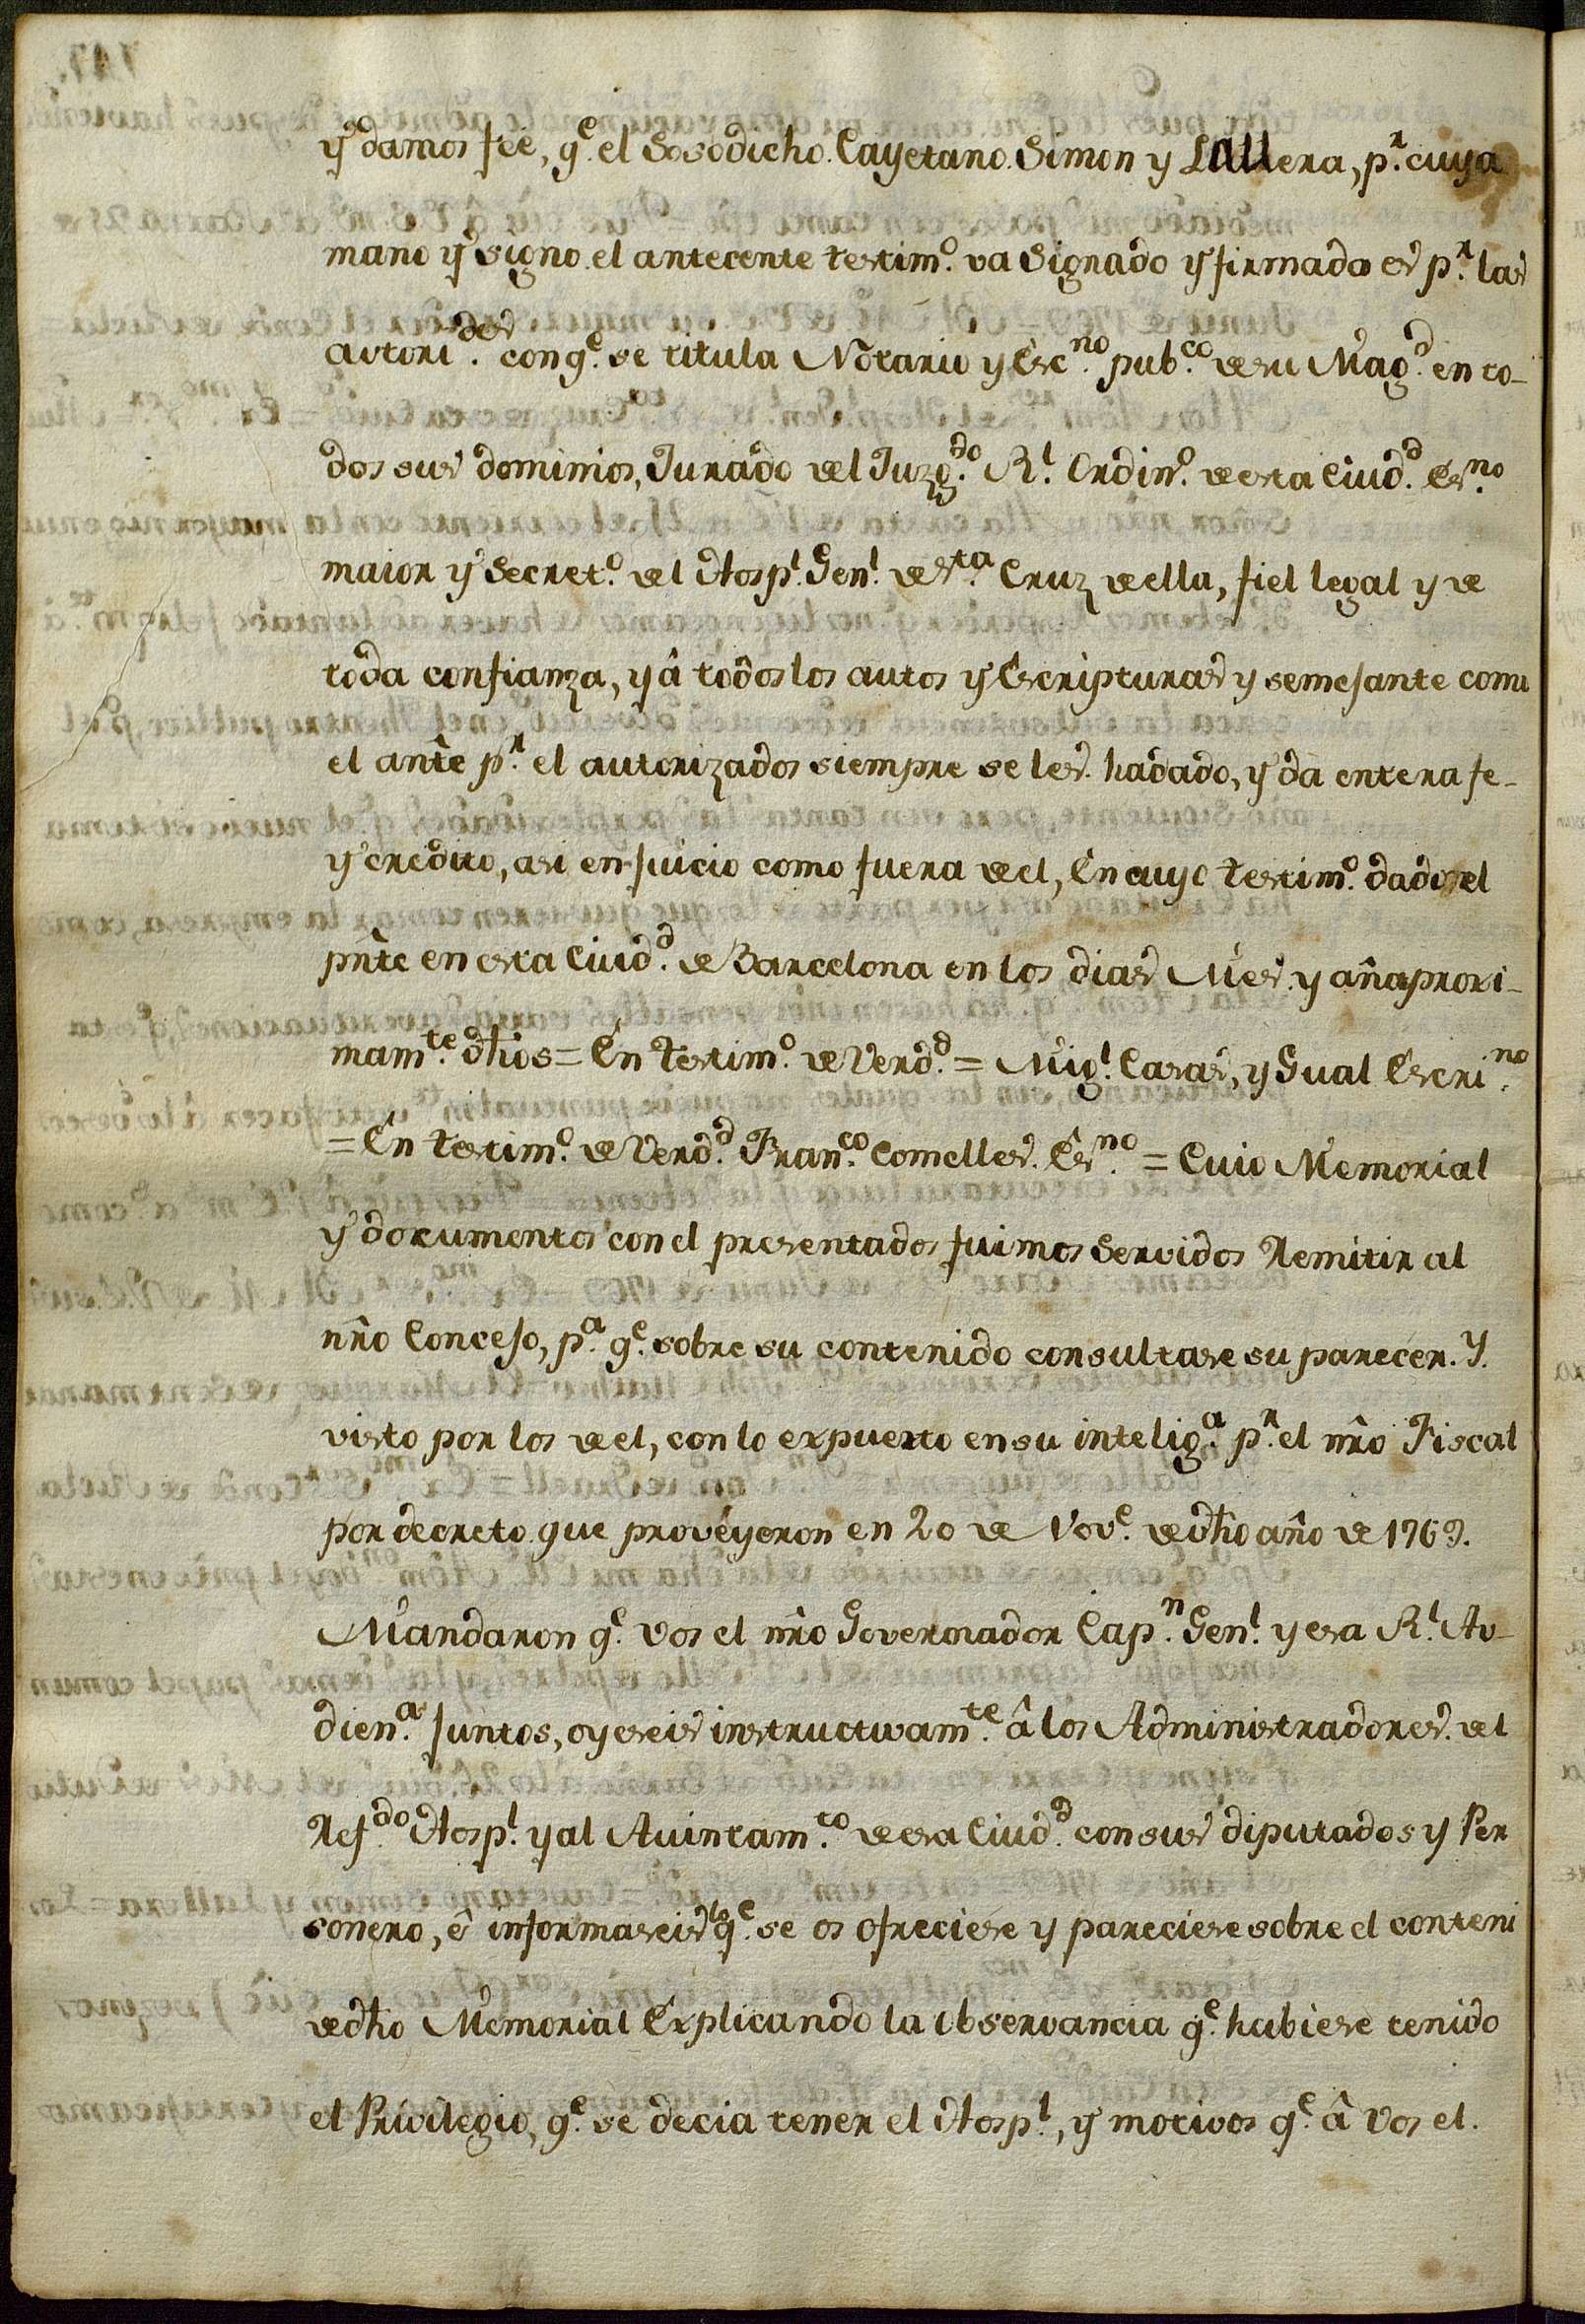 y damos fee, q.^e el Sosodicho Cayetano Simon y Lallena, p.^r cuya
mano y signo el antecente testim.^o va Signado y firmado es p.^r las
autori.^des con q.^e se titula Notario y Esc.^no pub.^co de su Mag.^d en to-
dos sus dominios, Jurado del Juzg.^do R.^l Ordin.^o de esta Ciud.^d Es.^no
maior y Secret.^o del Hosp.^l Gen.^l de S.^ta Cruz de ella, fiel legal y de
toda confianza, y â todos los autos y Escripturas y semejante como
el ante p.^r el autorizados siempre se les ha dado, y da entera fe-
y credito, asi en juicio como fuera de el, En cuyo testim.^o dados el
pñte en esta Ciud.^d de Barcelona en los dias Mes y año proxi-
mam.^te dhos = En testim.^o de Verd.^d = Mig.^l Casas, y Gual Escri.^no
= En testim.^o de Verd.^d Fran.^co Comelles Es.^no = Cuio Memorial
y documentos con el presentados fuimos Servidos Remitir al
nr̃o Consejo, p.^a q.^e sobre su contenido consultase su parecer. Y.
visto por los de el, con lo expuesto en su intelig.^a p.^r el nr̃o Fiscal
por decreto que proveyeron en 20 de Nov.^e de dho año de 1769.
Mandaron q.^e vos el nr̃o Governador Cap.^n Gen.^l y esa R.^l Au-
dien.^a juntos, oyeseis instructivam.^te â los Administradores del
Ref.^do Hosp.^l y al Auintam.^to de esa Ciud.^d con sus diputados y Per
sonero, é informaseis lo q.^e se os ofreciese y pareciese sobre el conteni
de dho Memorial Explicando la observancia q.^e hubiese tenido
el Privilegio, q.^e se decia tener el Hosp.^l, y motivos q.^e â vos el.